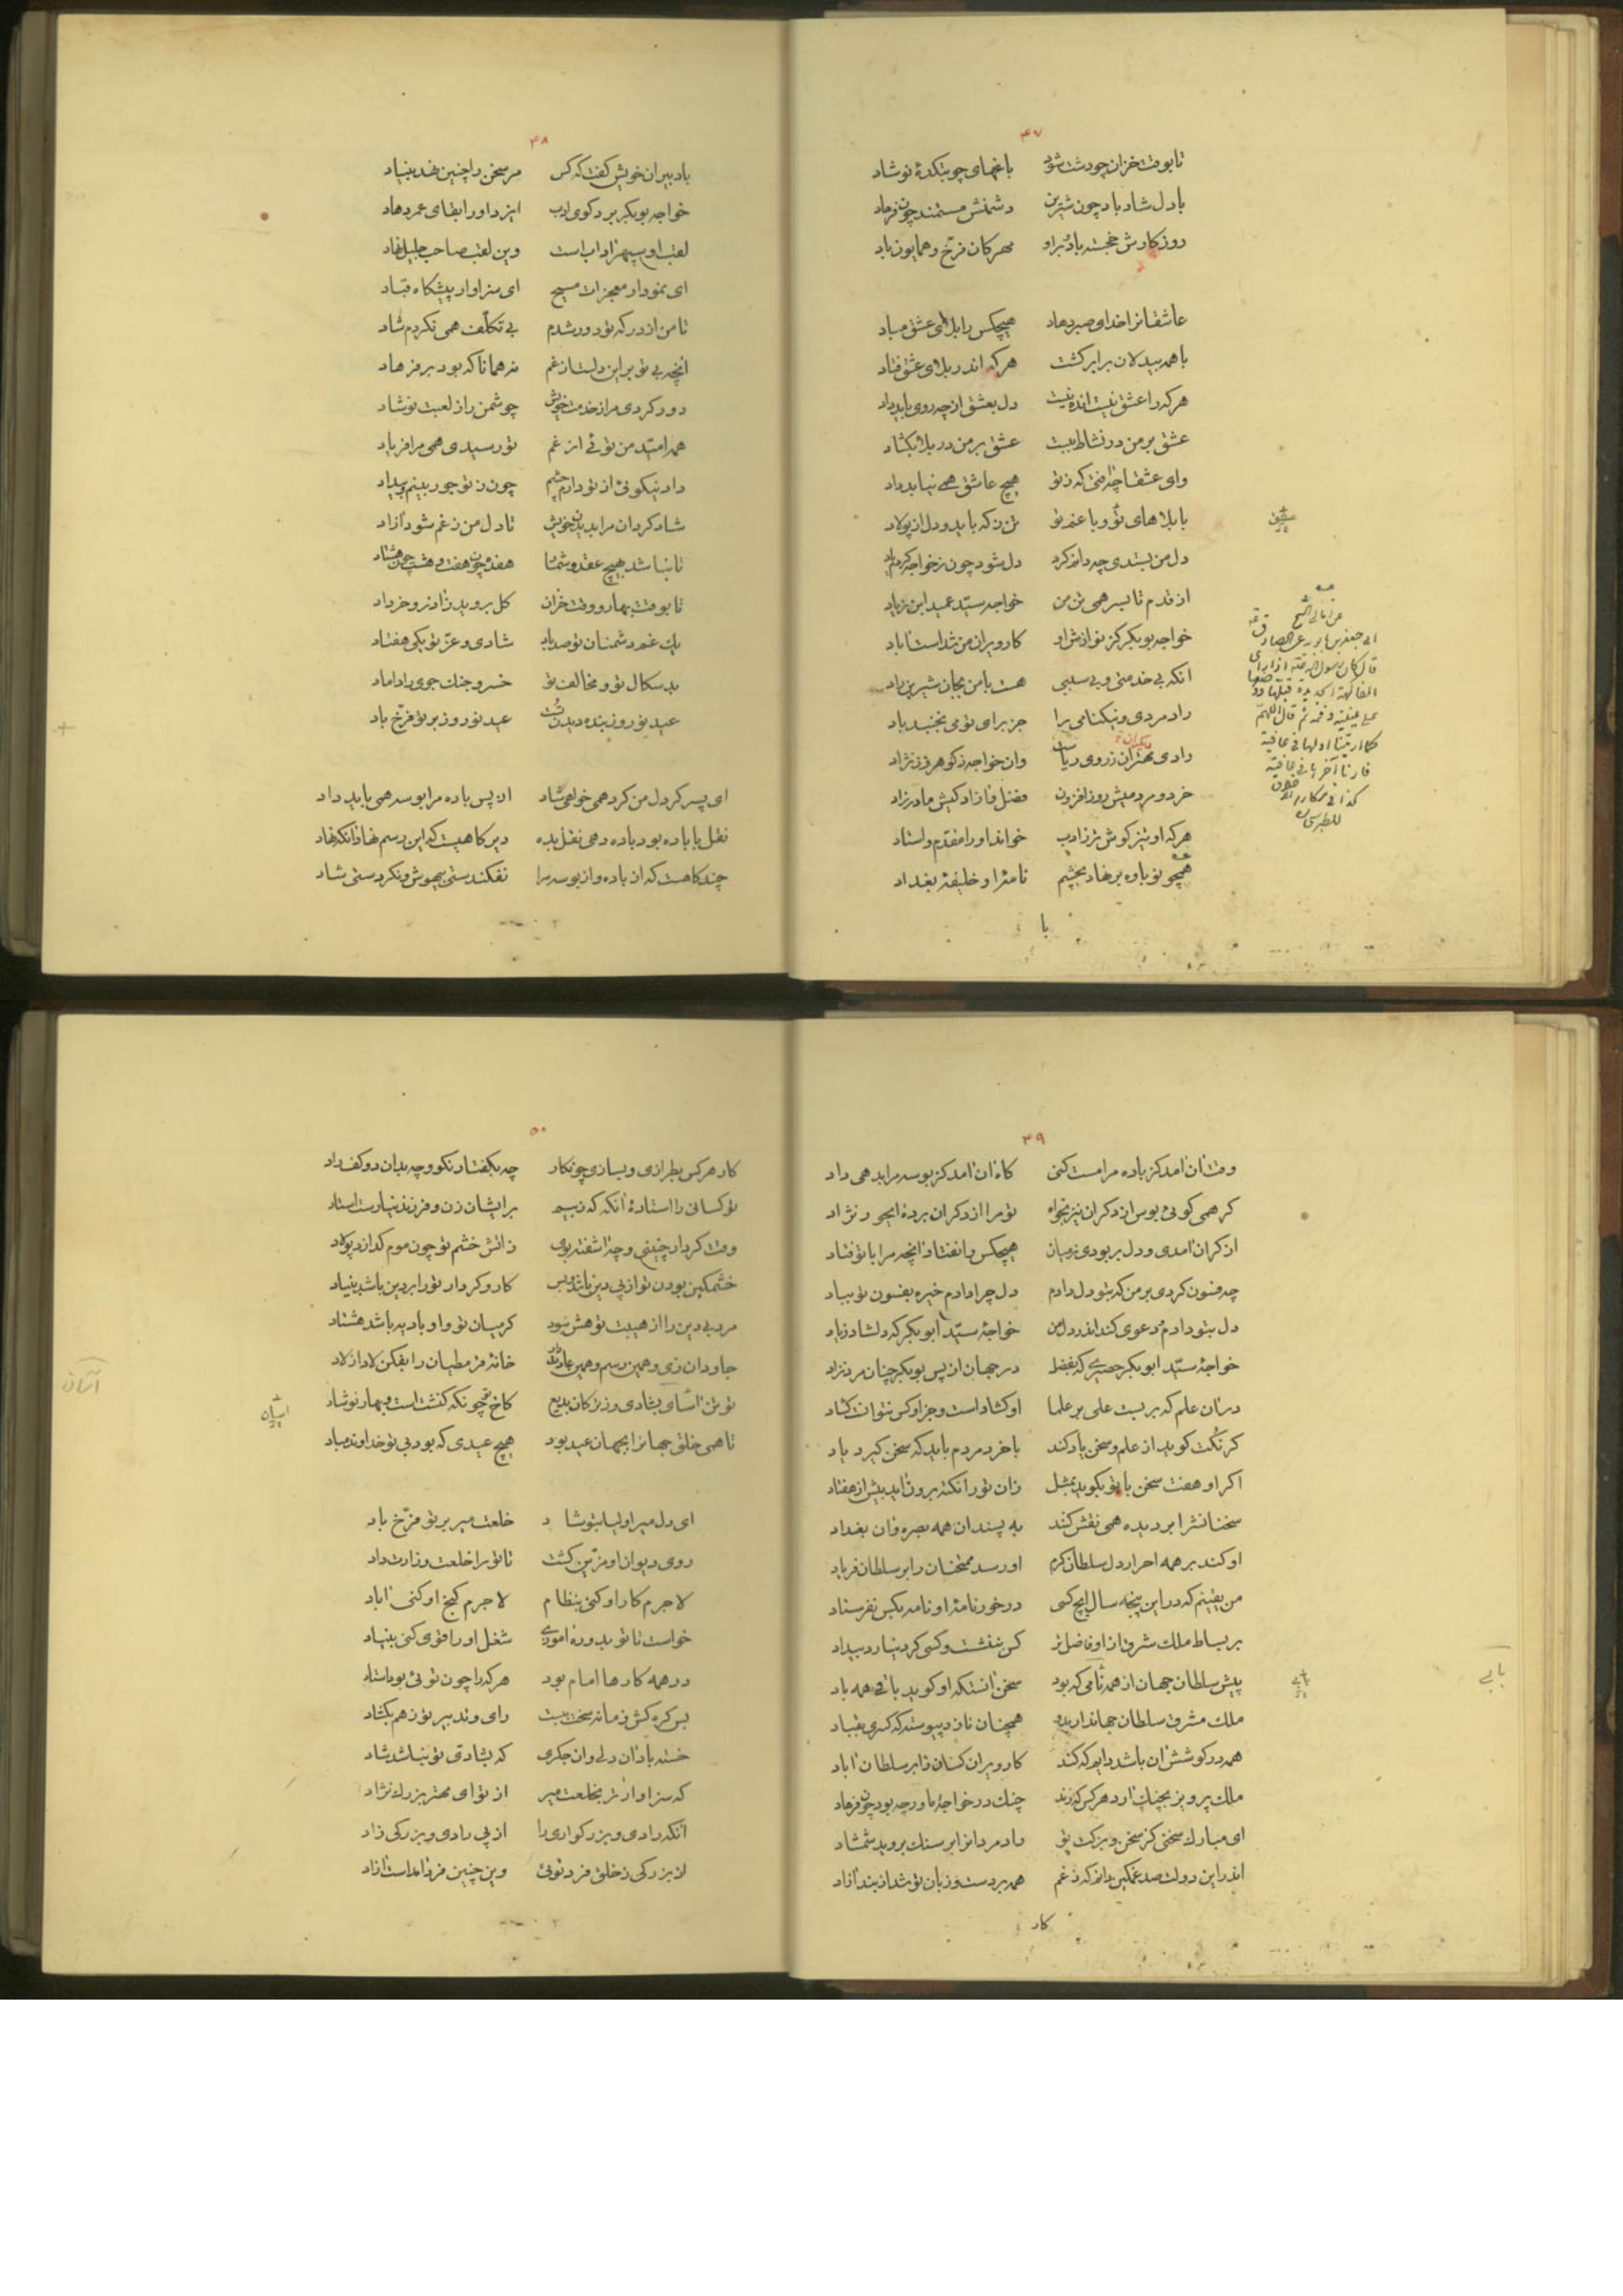 ۴۷
تا بوقت خزان چو دشت شود باغهای چو بتکدهٔ نوشاد
با دل شاد باد چون شیرین دشمنش مستمند چون فرهاد
روزکارش خجسته باد برو مهرکان فرّخ و همایون باد
عاشقانرا خدای صبر دهاد هیچکس را بلای عشق مباد
با همه بیدلان برابر کشت هرکه اندر بلای عشق فتاد
هرکه را عشق نیست انده نیست دل بعشق از چه روی باید داد
عشق بر من در نشاط ببست عشق بر من در بلا بکشاد
وای عشقا چه آفتی که ز تو هیچ عاشق همی نیابد داد
با بلاهای تو و با غم تو تن ز که باید و دل از پولاد
دل من بستدی چه دانم کرد دل شود چون ز خواجه کردم یاد
از قدم تا بسر همی تن من خواجه سیّد عمید ابن زیاد
خواجه بوبکر کز نوازش او کار ویران من شداست آباد
آنکه بی خدمتی و بی سببی هست با من بجان شیرین راد
راد مردی و نیکنامی را جز برای تو می نجنبد باد
رادی مهتران ز روی ریاست وان خواجه ز کوهر و ز نژاد
خرد و مردمیش روزافزون فضل و آزادکیش مادرزاد
هرکه او تیزکوش تر ز ادب خواند او را مقدّم و استاد
همچو نوباوه بر نهاد بچشم نامهٔ او خلیفهٔ بغداد
با
۴۸
با دبیران خویش کفت که کس مر سخن را چنین نهد بنیاد
خواجه بوبکر بردکوی ادب ایزد او را بقای عمر دهاد
لقب او سپهر آداب است وین لقب صاحب جلیل نهاد
ای نمودار معجزات مسیح ای سزاوار پیشکاه قباد
تا من از درکه تو دور شدم بی تکلّف همی نکردم شاد
آنچه بی تو برین دلست از غم نه همانا که بود بر فرهاد
دور کردی مرا ز خدمت خویش چو شمن را ز لعبت نوشاد
همه امّید من توئی از غم تو رسیدی همی مرا فریاد
داد نیکوئی از تو دارم چشم چون ز تو جور بینم و بیداد
شاد کردان مرا بدیدن خویش تا دل من ز غم شود آزاد
تا نباشد بهیچ عقد و شمار هفده چون هفت و هشت چون هشتاد
تا بوقت بهار و وقت خزان کل بروید ز آذر و خرداد
یک غم دشمنان تو صد باد شادی و عزّ تو یکی هفتاد
بدسکال تو و مخالف تو خسر و جنک جوی را داماد
عید نوروز بنده دیدن تست عید نوروز بر تو فرّخ باد
ای پسر کر دل من کرد همی خواهی شاد از پس باده مرا بوسه همی باید داد
نقل با باده بود باده دهی نقل بده دیرکاهیست که این رسم نهاد آنکه نهاد
چند کاهست که از باده و از بوسه مرا نفکندستی بیهوش و نکردستی شاد
۴۹
وقت آن آمد کز باده مرا مست کنی کاه آن آمد کز بوسه مرا بدهی داد
کر همی کوئی بوس از دکران نیز بخواه تو مرا از دکران برده‌ای حور نژاد
از کران آمدی و دل بربودی ز میان هیچکس را نفتاد آنچه مرا با تو فتاد
چه فسون کردی بر من که بتو دل دادم دل چرا دادم خیره بفسون تو بباد
دل بتو دادم و دعوی کند اندر دل من خواجهٔ سیّد ابوبکر که دلشاد زیاد
خواجهٔ سیّد ابوبکر حصیری که بفضل در جهان از پس بوبکر چنان مرد نزاد
در آن علم که بربست علی بر علما او کشادست و جز او کس نتوانست کشاد
کر نکت کوید از علم و سخن یاد کند با خرد مردم باید که سخن کیرد یاد
اکر او هفت سخن با تو بکوید بمثل زان تو را نکته برون آید بیش از هفتاد
سخنانش را بر دیده همی نقش کند به پسندان همه بصره و آن بغداد
او کند بر همه احرار دل سلطان کرم او رسد ممتحنان را بر سلطان فریاد
من یقینم که درین پنجه سال ایچ کسی درخور نامهٔ او نامه بکس نفرستاد
بر بساط ملک شرق از او فاضل‌تر کس بننشست و کسی کرد نیارد بیداد
پیش سلطان جهان از همه نامی که بود سخن آنست که او کوید باقی همه باد
ملک مشرق سلطان جهاندار بدو همچنان نازد پیوسته که کسری بقباد
همه در کوشش آن باشد دایم که کند کار ویران کسان را بر سلطان آباد
ملک پرویز بچنک آرد هر کس که زند چنک در خواجهٔ ما ور چه بود چون فرهاد
ای مبارک سخنی کز سخن و برکت تو راد مردانرا بر سنک بروید شمشاد
اندرین دولت صد غمکین دانم که ز غم همه بر دست و زبان تو شد از بند آزاد
کار
۵۰
کار هر کس بطرازی و بسازی چو نکار چه بکفتار نکو و چه بدان دو کف راد
تو کسانی را استاده آنکه که ز بیم بر ایشان زن و فرزند نیارست استاد
وقت کردار چنینی و چو آشفته بوی ز آتش خشم تو چون موم کدازد پولاد
خشمکین بودن تو از پی دین باشد و بس کار و کردار تو را بر دین باشد بنیاد
مرد بی دین را از هیبت تو هش نبود کر میان تو و او بادیه باشد هشتاد
جاودان زی و همین رسم و همین عادت دار خانهٔ قرمطیان را بفکن لاد از لاد
تو تن آسای بشادی و ز ترکان بدیع کاخ تو چونکه کنشت است و بهار نوشاد
تا همی خلق جهانرا بجهان عید بود هیچ عیدی که بود بی تو خداوند مباد
ای دل میر اولیا بتو شاد خلعت میر بر تو فرّخ باد
روی دیوان او مزیّن کشت تا تو را خلعت وزارت داد
لاجرم کار او کنی بنظام لاجرم کنج او کنی آباد
خواست تا تو بدو ره آموزی شغل او را قوی کنی بنیاد
در همه کارها امام بود هر که را چون توئی بود استاد
بس کره کش زمانه سخت ببست رای و تدبیر تو ز هم بکشاد
خسته باد آن دل و آن جکری که بشادی تو نباشد شاد
که سزاوارتر بخلعت میر از تو ای مهتر بزرک نژاد
آنکه رادی و بزرکواری را از پی رادی و بزرکی زاد
از بزرکی ز خلق فرد توئی وین چنین فرد آمدست آزاد